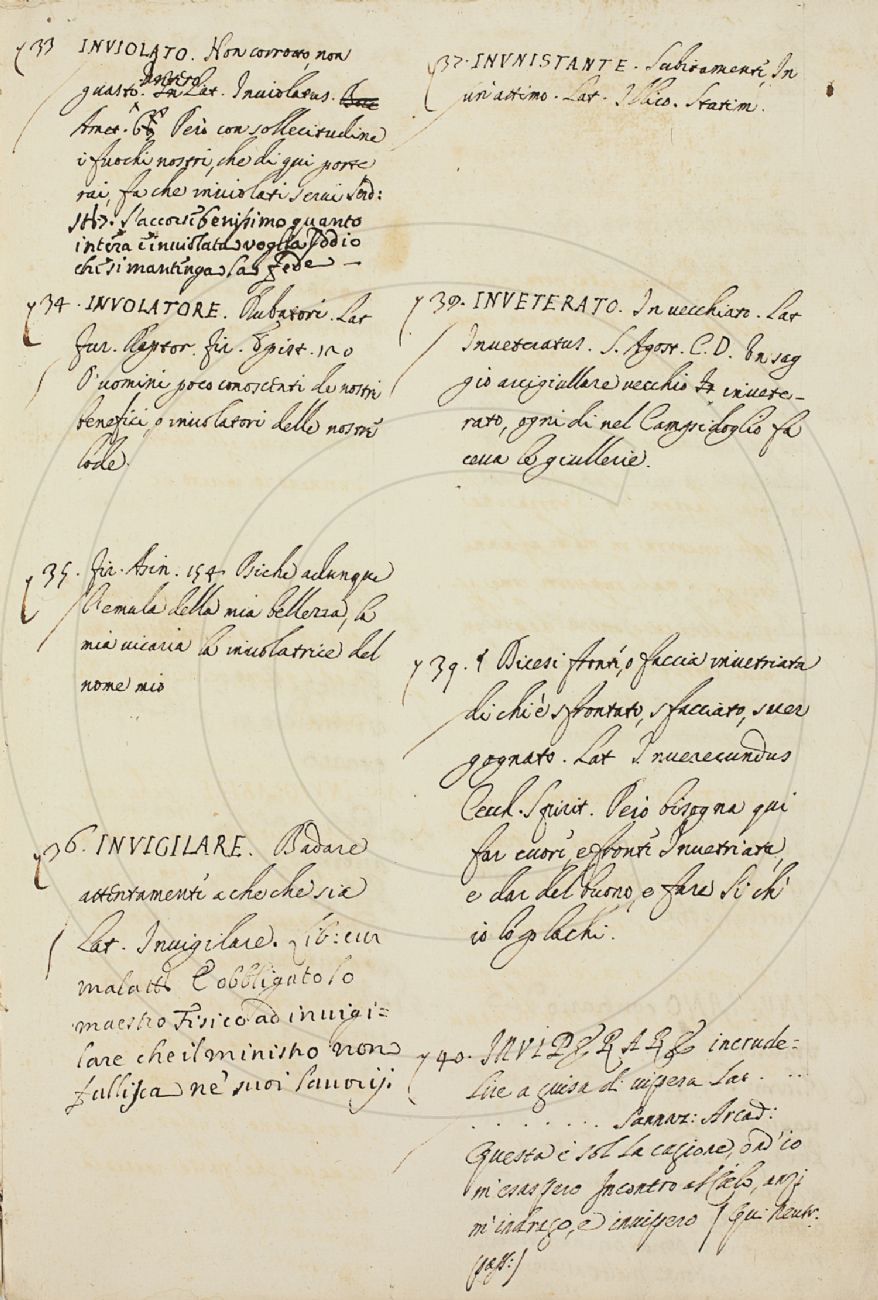 33 INVIOLATO. Non corrotto, non
guasto. Intero. Lat. Inviolatus.
Amet. 68 Però con sollecitudine
i fuochi nostri, che di qui porte
rai, fa che inviolati servi
S'accorse benissimo quanto
intera e inviolata voglia Iddio
che si mantenga la fede
34. INVOLATORE. Rubatore. Lat
Fur. Raptor. Fir. Epist. 120
O' uomini poco conoscenti de nostri
benefici, o involatori delle nostre
lode.
35. Fir. Asin. 154. Psiche adunque
Aemula della mia bellezza, la
mia vicaria la involatrice del
nome mio
36. INVIGILARE. Badare
attentamente a che che sia
Lat. Invigilare. Lib: cur
malatt. È obbligato lo
maestro Fisico ad invigi=
lare che il ministro non
fallisca ne' suoi lavorij.
37. INVNISTANTE. Subitamente, In
un'attimo. Lat. Illico. Statim.
39. INVETERATO. Invecchiato. Lat
Inveteratus. S. Agost. C.D. Un sag
gio arcigiullare vecchio e invete-
rato, ogni di nel Campidoglio fa
ceva le giullerie.
39. ¶ Dicesi fronte, o faccia invetriata
di chi è sfrontato, sfacciato, sver
gognato. Lat Inverecundus
Cecch. Spirit. Però bisogna qui
far cuore, e fronte Invetriata,
e dar del buono, e fare sì ch'
io lo plachi.
40. INVIPERARE incrude=
lire a guisa di vipera Lat. ...
. . . . . . . Sannaz: Arcad:
Questa è sol la cagione, ond'io
m'esaspero Incontro al Cielo, anzi
m'indrago, e invipero / qui neutr:
pass: /